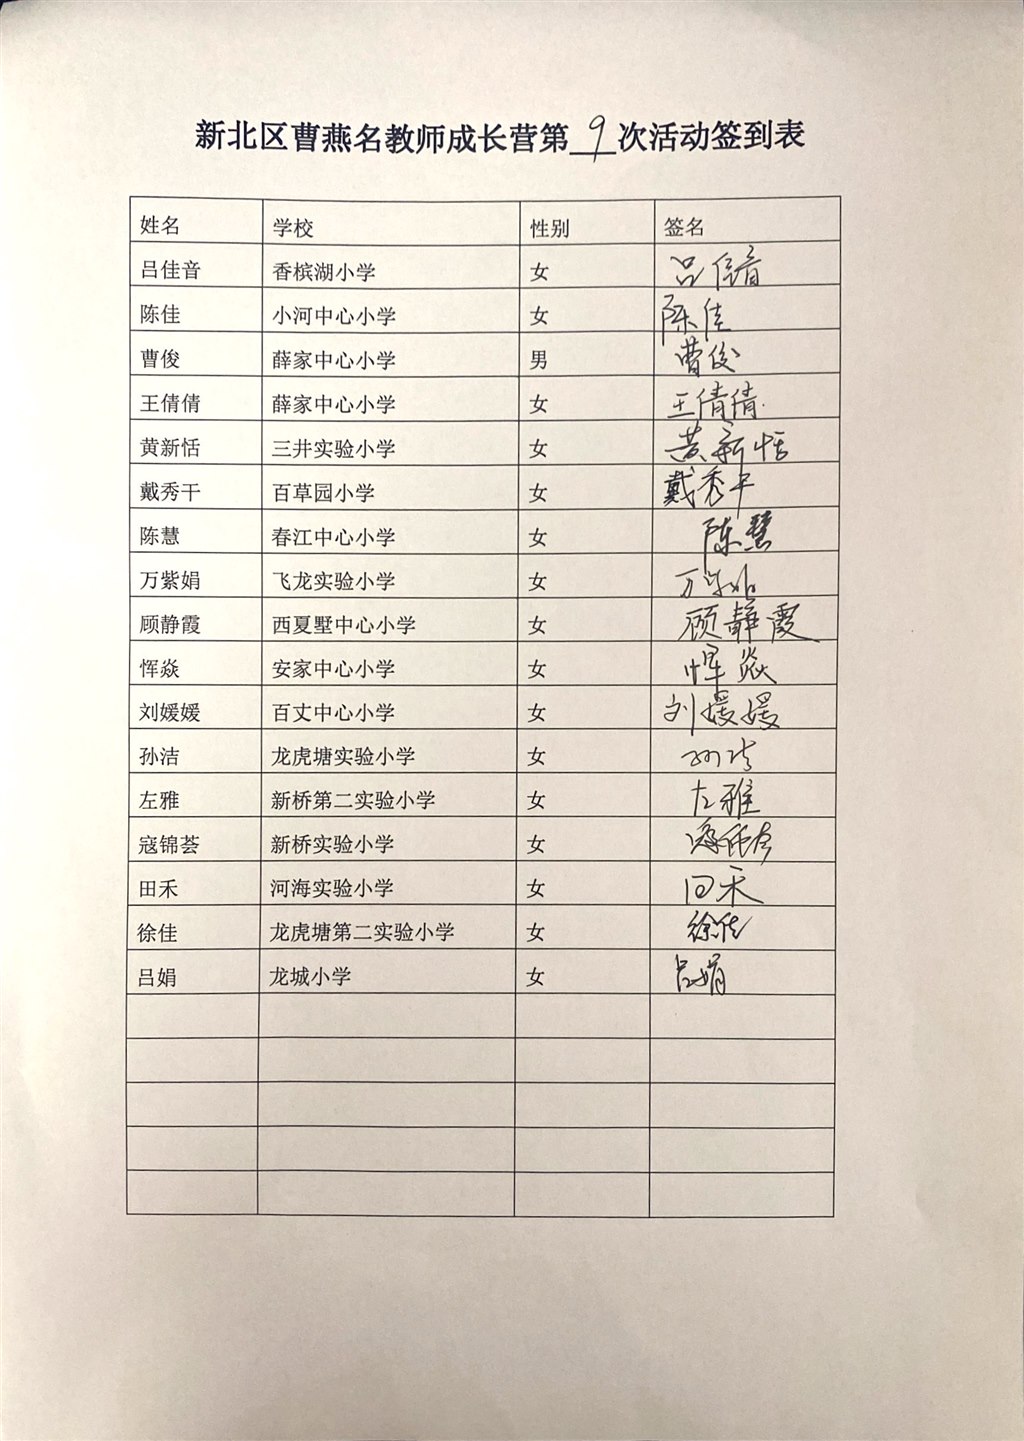 新北区曹燕名教师成长营第9次活动签到表
姓名 学校 性别 签名
吕佳音 香槟湖小学 女 吕佳音
陈佳 小河中心小学 女 陈佳
曹俊 薛家中心小学 男 曹俊
王倩倩 薛家中心小学 女 王倩倩
黄新恬 三井实验小学 女 黄新恬
戴秀干 百草园小学 女 戴秀干
陈慧 春江中心小学 女 陈慧
万紫娟 飞龙实验小学 女 万紫娟
顾静霞 西夏墅中心小学 女 顾静霞
恽焱 安家中心小学 女 恽焱
刘媛媛 百丈中心小学 女 刘媛媛
孙洁 龙虎塘实验小学 女 孙洁
左雅 新桥第二实验小学 女 左雅
寇锦荟 新桥实验小学 女 寇锦荟
田禾 河海实验小学 女 田禾
徐佳 龙虎塘第二实验小学 女 徐佳
吕娟 龙城小学 女 吕娟